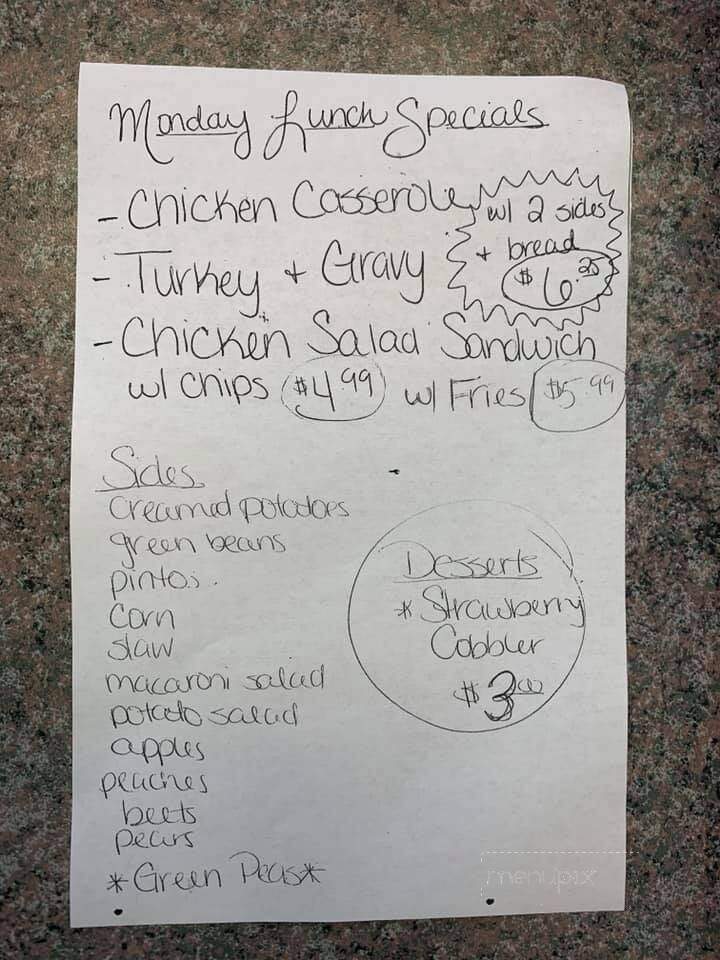 Monday Lunch Specials
- Chicken Casserole
w/ 2 sides
+ bread
$6.25
- Turkey + Gravy
- Chicken Salad Sandwich
w/ chips $4.99 w/ Fries $5.99
Sides
creamed potatoes
green beans
pintos
corn
slaw
macaroni salad
potato salad
apples
peaches
beets
pears
*Green Peas*
Desserts
* Strawberry
Cobbler
$3.00
menupix